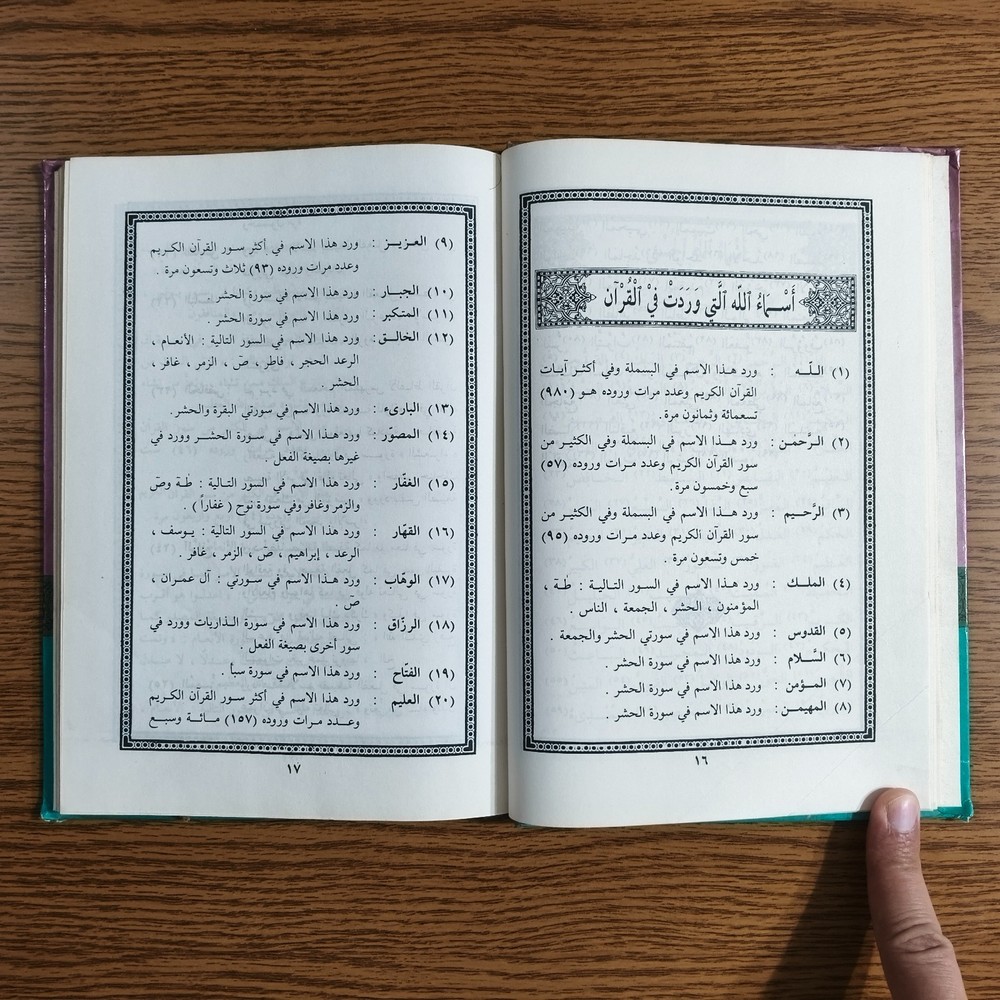 أَسْمَاءُ ٱللّه ٱلَّتِي وَرَدَتْ فِيْ ٱلْقُرْآن
(١) اللّـه : ورد هـذا الاسم في البسملة وفي أكثـر آيـات
القرآن الكريم وعدد مرات وروده هـو (٩٨٠)
تسعمائة وثمانون مرة .
(٢) الـرَّحمٰـن : ورد هـذا الاسم في البسملة وفي الكثيـر من
سور القرآن الكريم وعدد مـرات وروده (٥٧)
سبع وخمسون مرة .
(٣) الرَّحـيـم : ورد هـذا الاسم في البسملة وفي الكثيـر من
سور القرآن الكريم وعدد مـرات وروده (٩٥)
خمس وتسعون مرة .
(٤) الملـك : ورد هـذا الاسم في السور التـاليـة : طٰـة ،
المؤمنون ، الحشر ، الجمعة ، الناس .
(٥) القدوس : ورد هذا الاسم في سورتي الحشر والجمعة .
(٦) السَّـلام : ورد هذا الاسم في سورة الحشر .
(٧) المـؤمن : ورد هذا الاسم في سورة الحشر .
(٨) المهيمـن : ورد هذا الاسم في سورة الحشر .
١٦
(٩) العـزيـز : ورد هذا الاسم في أكثر سـور القرآن الكـريم
وعدد مرات وروده (٩٣) ثلاث وتسعون مرة .
(١٠) الجبـار : ورد هذا الاسم في سورة الحشر .
(١١) المتكبر : ورد هذا الاسم في سورة الحشر .
(١٢) الخالـق : ورد هـذا الاسم في السور التالية : الأنعـام ،
الرعد الحجر ، فاطر ، صۤ ، الزمر ، غافر ،
الحشر .
(١٣) البارىء : ورد هذا الاسم في سورتي البقرة والحشر .
(١٤) المصوّر : ورد هـذا الاسم في سورة الحشـر وورد في
غيرها بصيغة الفعل .
(١٥) الغفّار : ورد هذا الاسم في السور التـاليـة : طٰـة وصۤ
والزمر وغافر وفي سورة نوح ( غفاراً ) .
(١٦) القهّار : ورد هذا الاسم في السور التالية : يـوسف ،
الرعد ، إبراهيم ، صۤ ، الزمر ، غافر .
(١٧) الوهّاب : ورد هـذا الاسم في سورتي : آل عمـران ،
صۤ .
(١٨) الرزّاق : ورد هـذا الاسم في سورة الـذاريات وورد في
سور أخرى بصيغة الفعل .
(١٩) الفتّاح : ورد هذا الاسم في سورة سبأ .
(٢٠) العليم : ورد هذا الاسم في أكثر سـور القرآن الكـريم
وعـدد مـرات وروده (١٥٧) مـائـة وسبـع
١٧